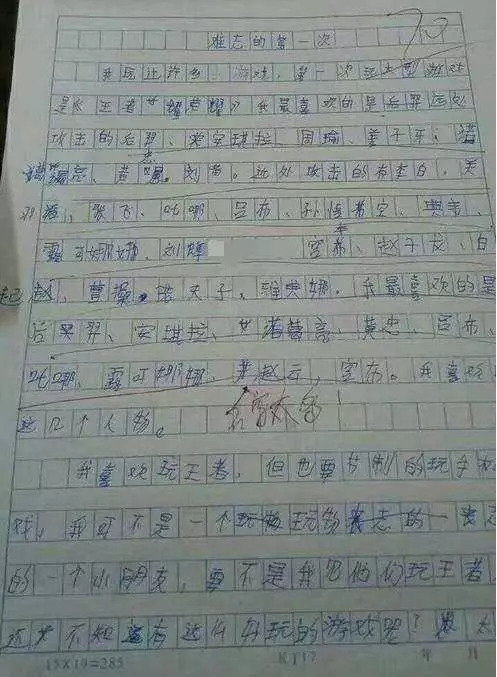 难忘的第一次
我玩过许多游戏,第一次玩大型游戏
是《王者荣耀》我最喜欢的是后羿远处
攻击的后羿、安琪拉、周瑜、姜子牙、诸
葛亮、刘备。近处攻击的有李白、关
羽、张飞、吒哪、吕布、孙悟空、典韦、
露可娜娜、刘 空布、赵子龙、白
起、曹操、诺夫子、雅典娜。我最喜欢的是
后羿、安琪拉、诸葛亮、黄忠、吕布、
吒哪、露可娜娜、赵云、空布。我喜欢
这几个人物。
名字太多!
我喜欢玩王者,但也要节制的玩手机
戏,我可不是一个玩物丧志的
的一个小朋克,要不是我见他们玩王者,
还不知道有这么好玩的游戏呢?
15×19=285
K117
年 月